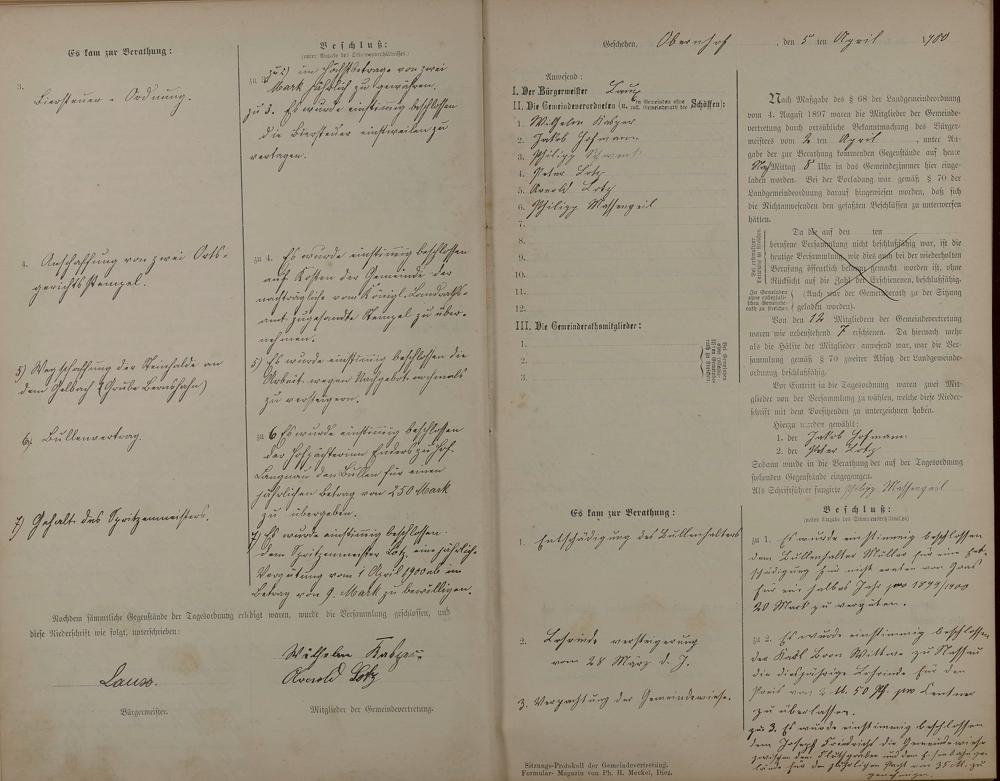 Es kam zur Berathung:
Beschluß:
(unter Angabe des Stimmenverhältnisses.)
zu 2) im Höchstbetrage von zwei
Mark jährlich zu gewähren.
3.
Biersteuer = Ordnung.
zu 3. Es wurde einstimmig beschlossen
die Biersteuer einstweilen zu
vertagen.
4. Anschaffung von zwei Orts=
gerichtsstempel.
zu 4. Es wurde einstimmig beschlossen
auf Kosten der Gemeinde der
nachträgliche vom Königl. Landraths-
amt zugesandte Stempel zu über-
nehmen.
5) Wegschaffung der Steinhalde an
dem Gelbach (Grube
5) Es wurde einstimmig beschlossen die
Arbeit wegen Nachgebot nochmals
zu versteigern.
6. Bullenvertrag.
zu 6 Es wurde einstimmig beschlossen
der Hofpächterin Enders zu Hof
Langnau den Bullen für einen
jährlichen Betrag von 250 Mark
zu übergeben.
7) Gehalt des Spritzenmeisters.
7) Es wurde einstimmig beschlossen
dem Spritzenmeister Lotz eine jährliche
Vergütung vom 1 April 1900 ab im
Betrag von 9. Mark zu bewilligen.
Nachdem sämmtliche Gegenstände der Tagesordnung erledigt waren, wurde die Versammlung geschlossen, und
diese Niederschrift wie folgt, unterschrieben:
Wilhelm Kasper
Arnold Lotz
Bürgermeister.
Mitglieder der Gemeindevertretung.
Geschehen, Obernhof, den 5 ten April 1900
Anwesend:
I. Der Bürgermeister
II. Die Gemeindeverordneten (u. in Gemeinden ohne koll. Gemeinderath die Schöffen):
1. Wilhelm Kasper
2. Jakob Hofmann
3. Philipp
4. Peter Lotz
5. Arnold Lotz
6. Philipp Massengeil
7.
8.
9.
10.
11.
12.
III. Die Gemeinderathsmitglieder:
1.
2.
3.
Nach Maßgabe des § 68 der Landgemeindeordnung
vom 4. August 1897 waren die Mitglieder der Gemeinde-
vertretung durch ortsübliche Bekanntmachung des Bürger-
meisters vom 2 ten April, unter An-
gabe der zur Berathung kommenden Gegenstände auf heute
Nachmittag 8 Uhr in das Gemeindezimmer hier einge-
laden worden. Bei der Vorladung war gemäß § 70 der
Landgemeindeordnung darauf hingewiesen worden, daß sich
die Nichtanwesenden den gefaßten Beschlüssen zu unterwerfen
hätten.
Da die auf den ten
berufene Versammlung nicht beschlußfähig war, ist die
heutige Versammlung, wie dies auch bei der wiederholten
Berufung öffentlich bekannt gemacht worden ist, ohne
Rücksicht auf die Zahl der Erschienenen, beschlußfähig.
(Auch war der Gemeinderath zu der Sitzung
geladen worden).
Von den 12 Mitgliedern der Gemeindevertretung
waren wie nebenstehend 7 erschienen. Da hiernach mehr
als die Hälfte der Mitglieder anwesend war, war die Ver-
sammlung gemäß § 70 zweiter Absatz der Landgemeinde-
ordnung beschlußfähig.
Vor Eintritt in die Tagesordnung waren zwei Mit-
glieder von der Versammlung zu wählen, welche diese Nieder-
schrift mit dem Vorsitzenden zu unterzeichnen haben.
Hierzu wurden gewählt:
1. der Jakob Hofmann
2. der Peter Lotz
Sodann wurde in die Berathung der auf der Tagesordnung
stehenden Gegenstände eingegangen.
Als Schriftführer fungirte Philipp Massengeil
Es kam zur Berathung:
Beschluß:
(unter Angabe des Stimmenverhältnisses)
1. Entschädigung des Bullenhalters
zu 1. Es wurde einstimmig beschlossen
dem Bullenhalter Müller für eine Ent-
schädigung für nicht von Gras
für ein halbes Jahr pro 1899/1900
20 Mark zu vergüten.
2. Lohrinde versteigerung
vom 28 März d. J.
zu 2. Es wurde einstimmig beschlossen
der Karl zu Nassau
die diesjährige Lohrinde für den
Preis von 2 M. 50 Pf. pro Centner
zu überlassen.
3. Verpachtung der Gemeindewiese.
zu 3. Es wurde einstimmig beschlossen
dem Joseph Friedrich die Gemeindewiese
zwischen dem und dem Eisenbahnge-
lände für die jährlichen Pacht von 35 M. zu
genehmigen.
Sitzungs-Protokoll der Gemeindevertretung.
Formular-Magazin von Ph. H. Meckel, Diez.